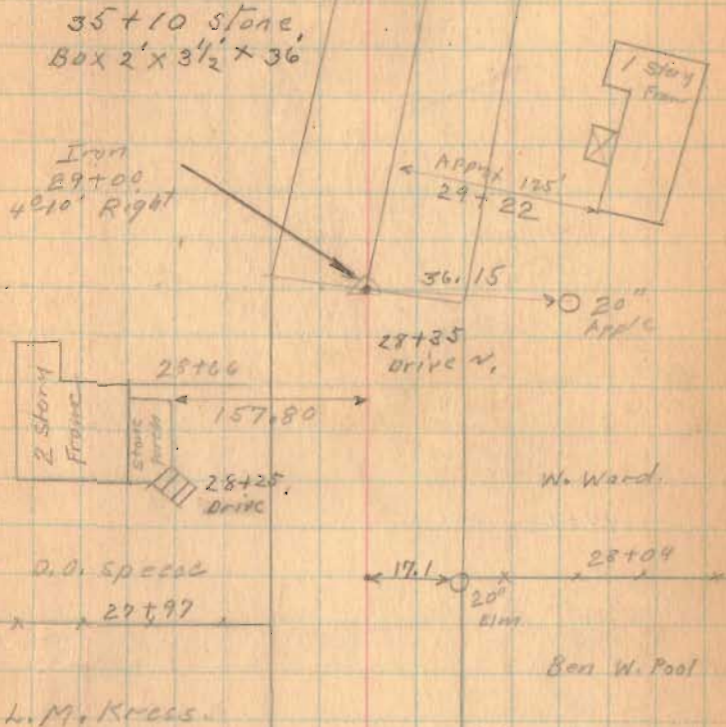 35+10 Stone,
Box 2' x 3½' x 36'
1 Story
Frame
Iron
29+00
4°10' Right
Approx 125'
29+22
36.15
20"
Apple
28+35
Drive
28+66
157.80
2 Story
Frame
Stone
Porch
28+25
Drive
W. Ward
O.O.
27+97
17.1
20"
Elm
28+04
Ben W. Pool
L. M. Kress.